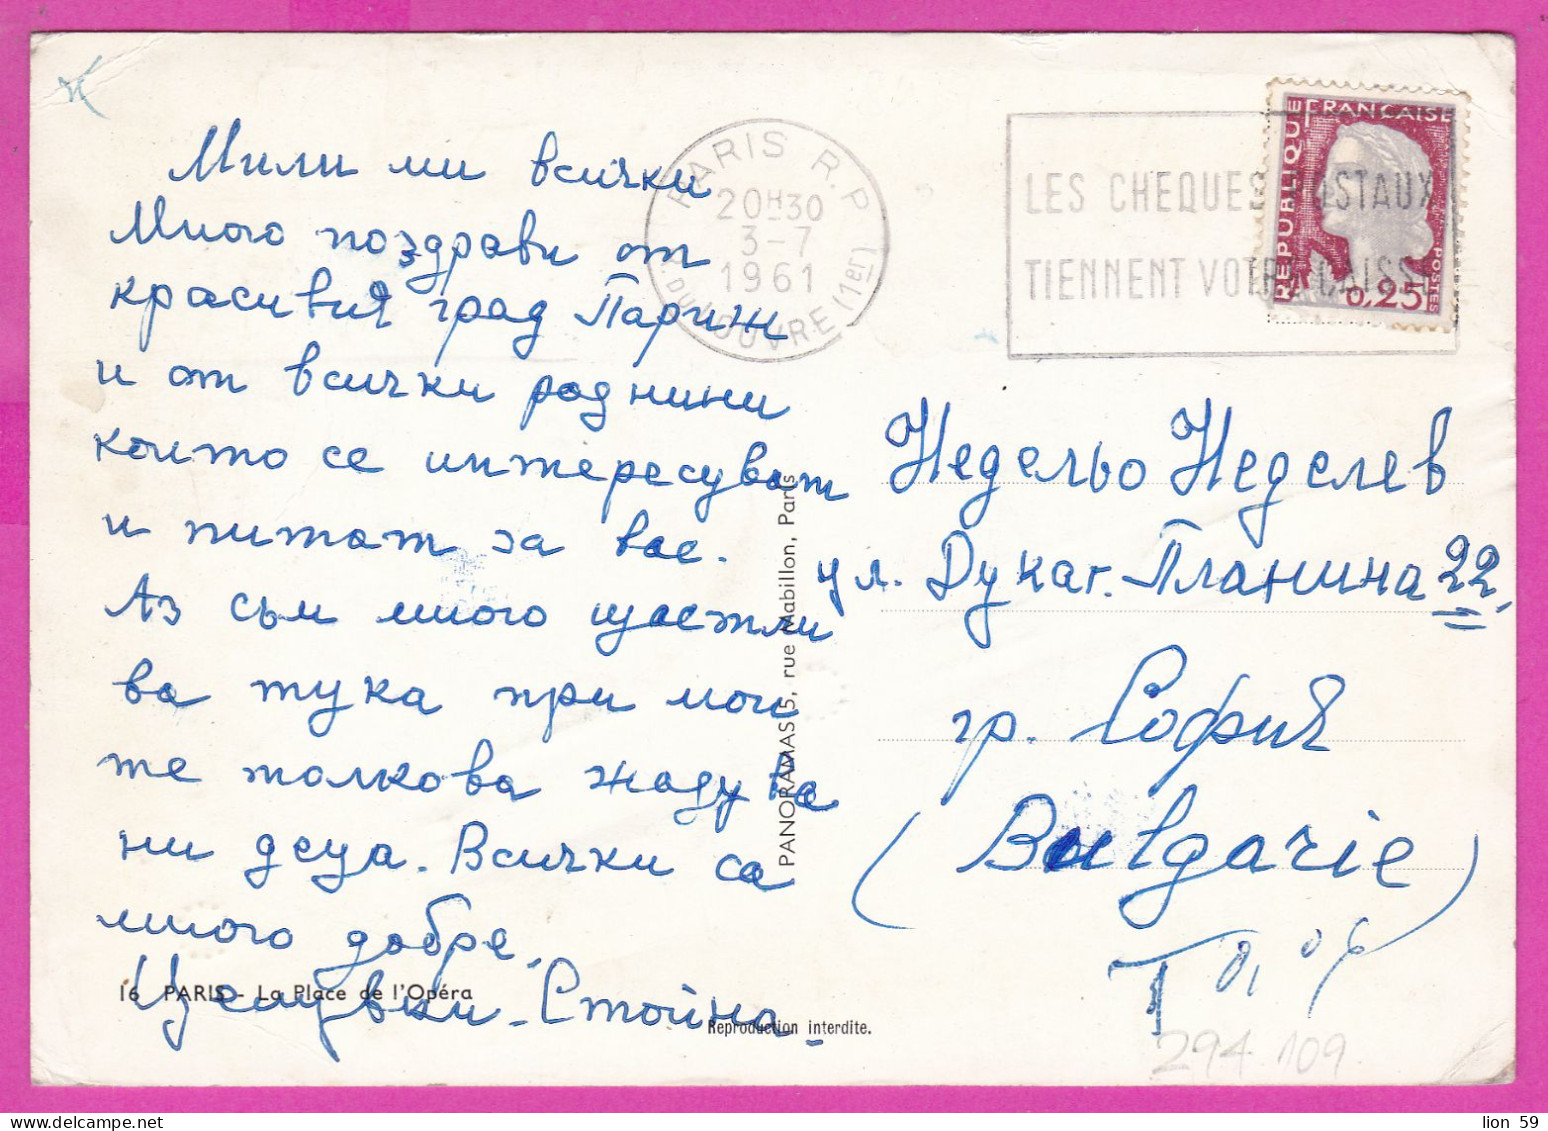 Мили ми всички
Много поздрави от
красивия град Париж
и от всички роднини
които се интересуват
и питат за вас.
Аз съм много щастли
ва тука при мои
те толкова жадува
ни деца. Всички са
много добре.
Целувки. Стойна.
16 PARIS - La Place de l'Opéra
Reproduction interdite.
PANORAMAS 5, rue Mabillon, Paris
PARIS R.P.
20H30
3-7
1961
R. DU LOUVRE (1er)
LES CHEQUES POSTAUX
TIENNENT VOTRE CAISSE
REPUBLIQUE FRANÇAISE
POSTES
0,25
Недельо Неделев
ул. Дукат. Планина 22,
гр. София
(Bulgarie)
T 0,06
294 109
lion 59